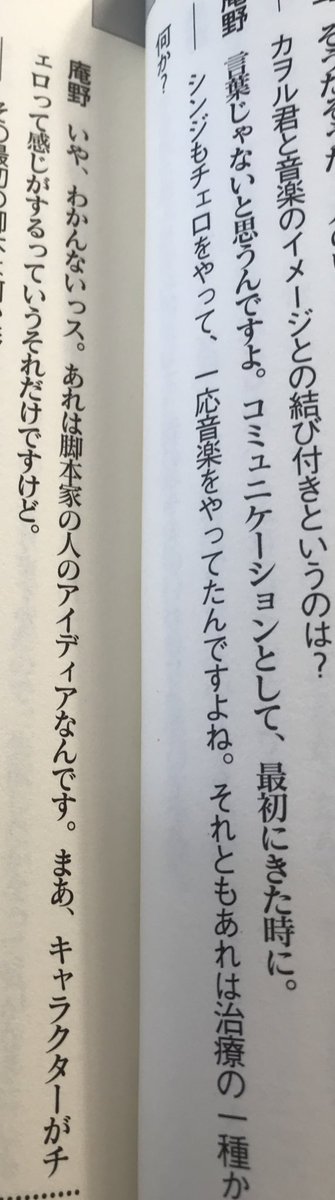 カヲル君と音楽のイメージとの結び付きというのは？
庵野　言葉じゃないと思うんですよ。コミュニケーションとして、最初にきた時に。
――シンジもチェロをやって、一応音楽をやってたんですよね。それともあれは治療の一種か
何か？
庵野　いや、わかんないっス。あれは脚本家の人のアイディアなんです。まあ、キャラクターがチ
ェロって感じがするっていうそれだけですけど。